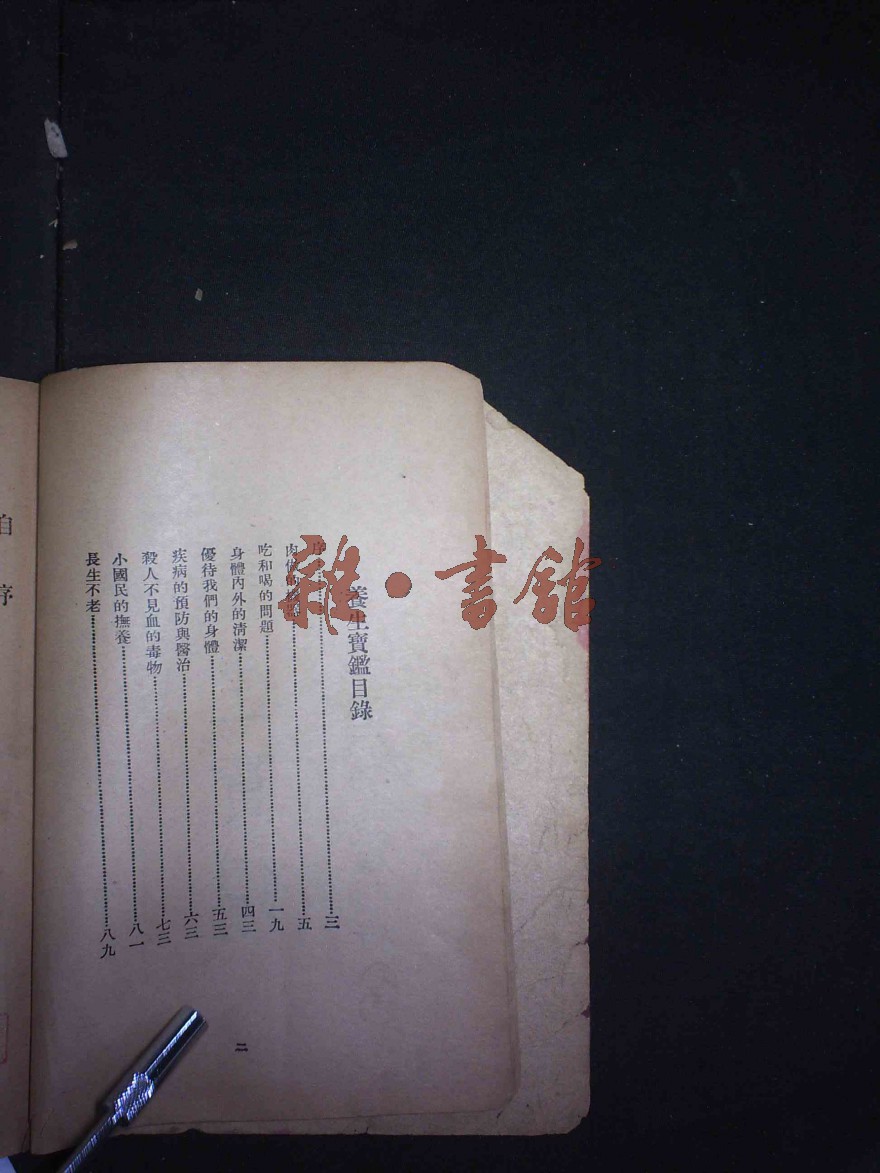 養生寶鑑目錄
序 三
肉體的 五
吃和喝的問題 一九
身體內外的清潔 四三
優待我們的身體 五三
疾病的預防與醫治 六三
殺人不見血的毒物 七三
小國民的撫養 八一
長生不老 八九
二
自序
雜·書館